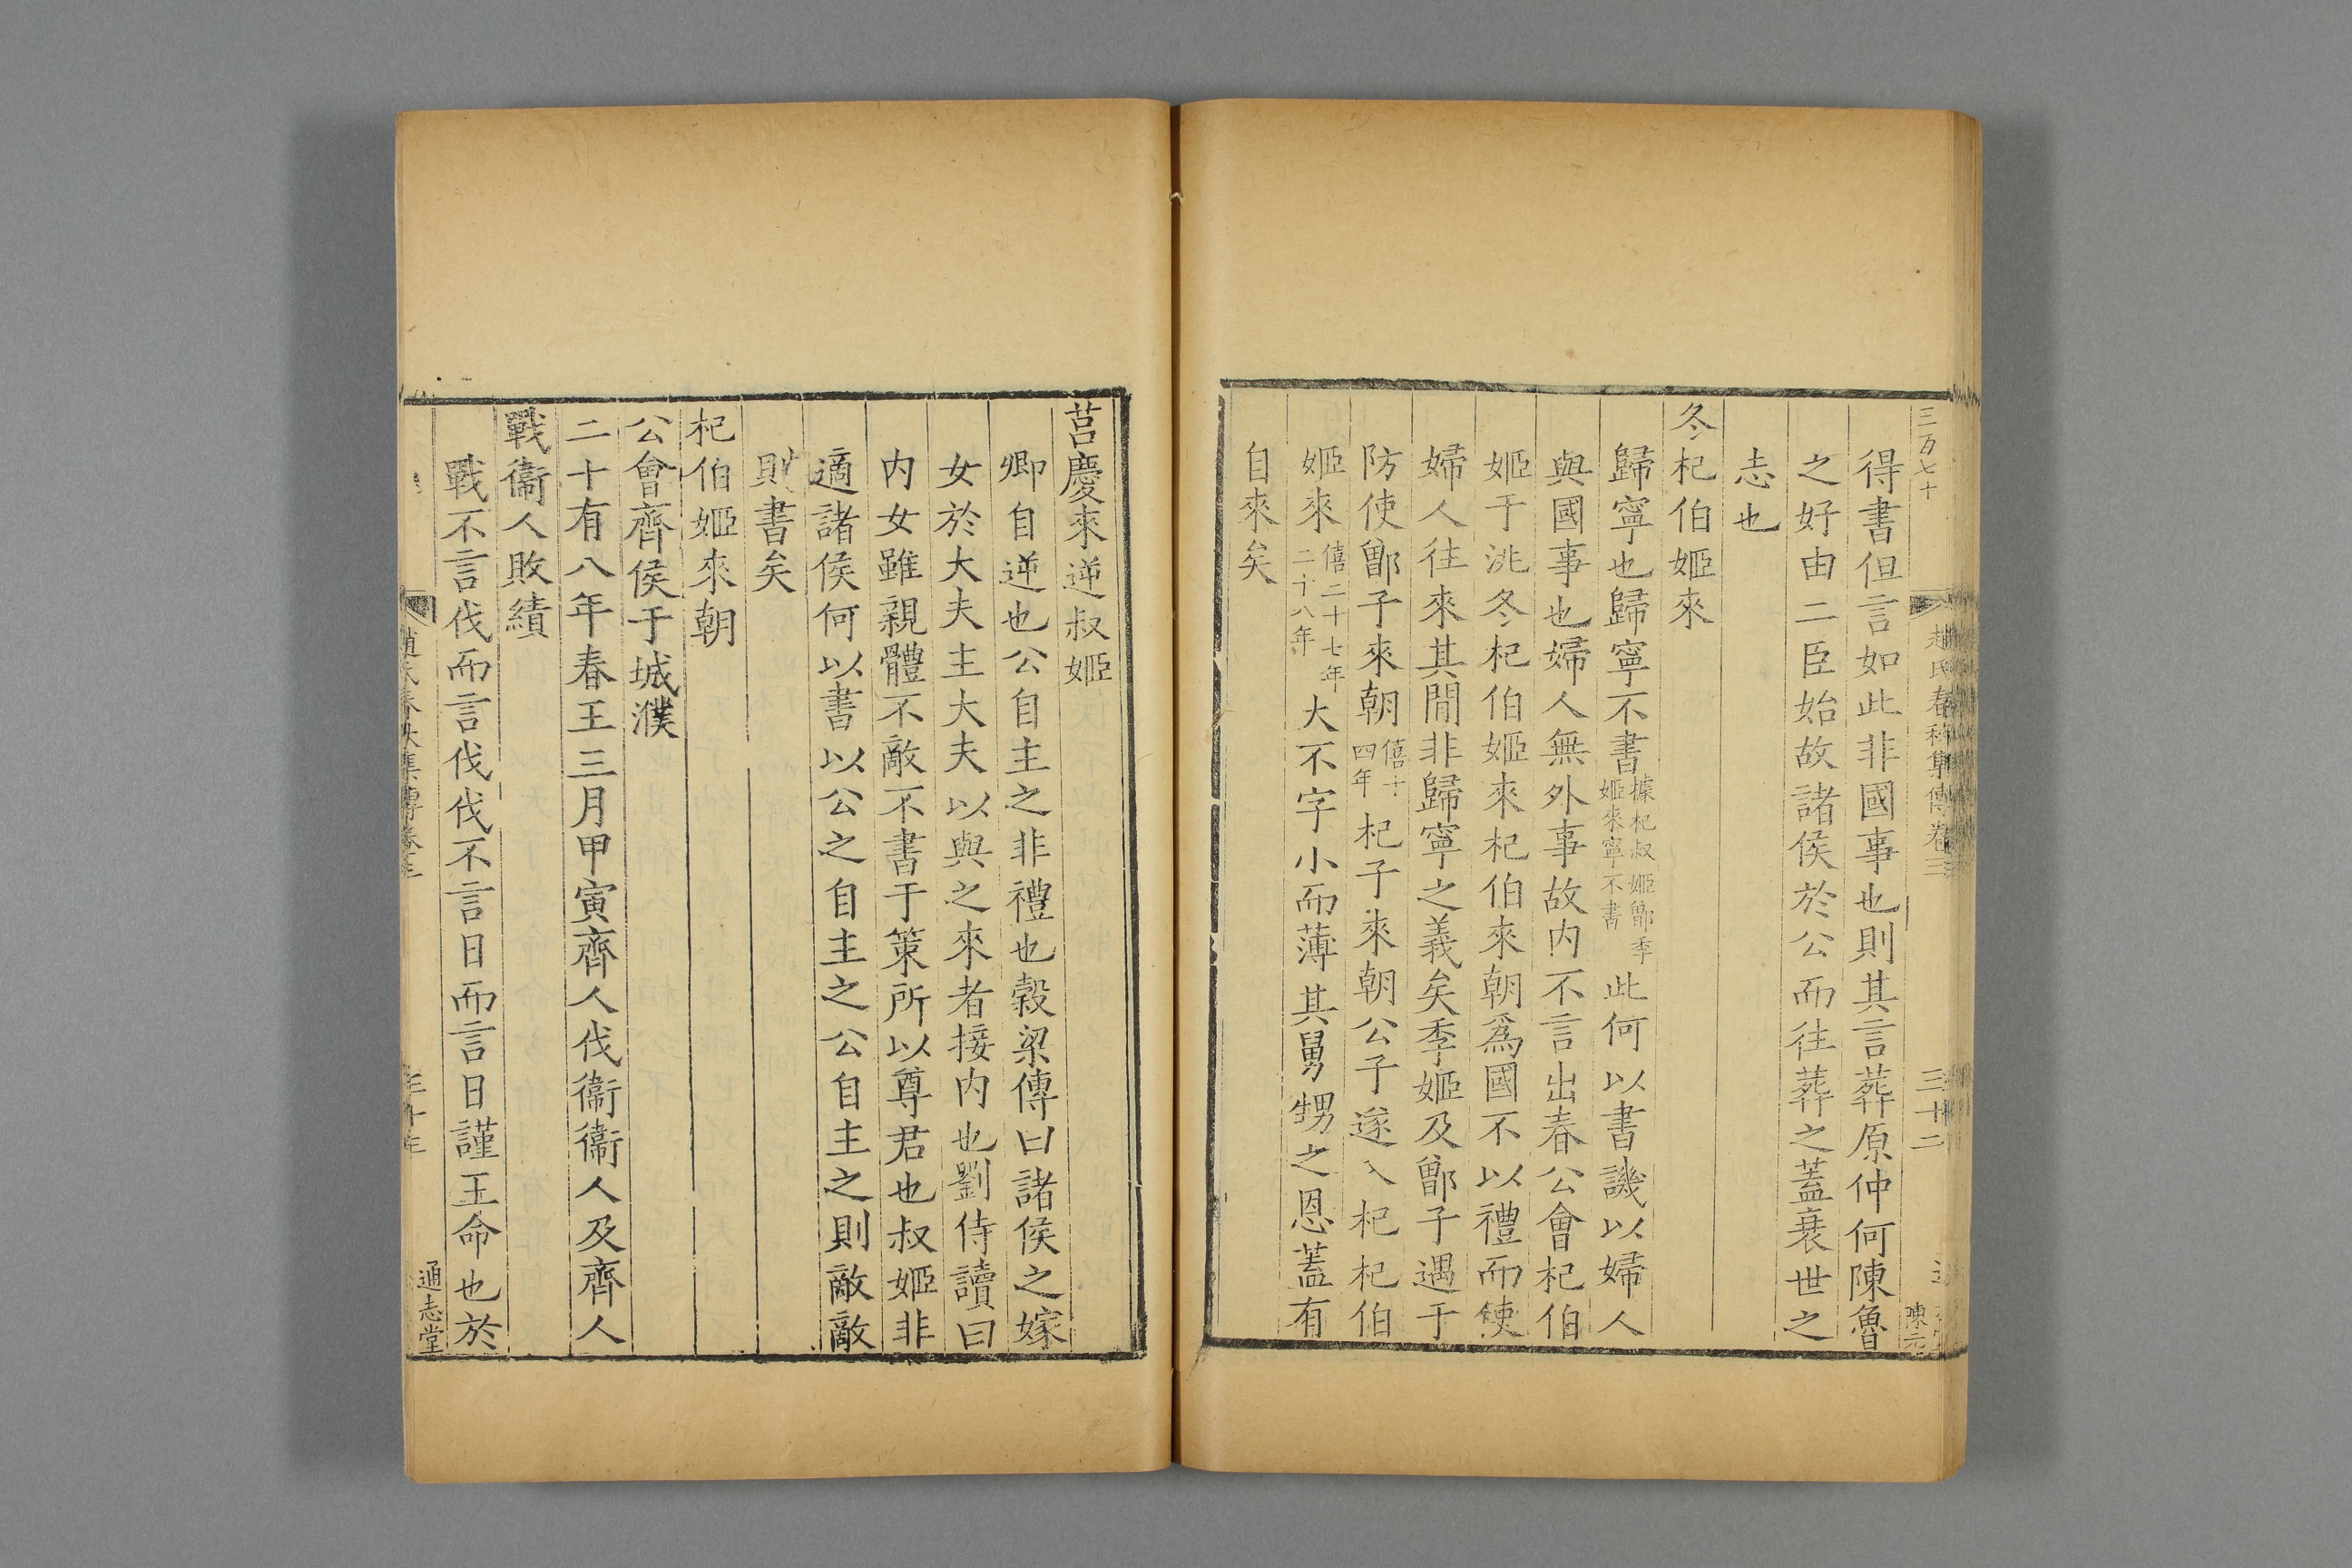 三万七十
趙氏春秋集傳卷三
三十二
陳元
得書但言如此非國事也則其言葬原仲何陳魯
之好由二臣始故諸侯於公而往葬之蓋衰世之
志也
冬杞伯姬來
歸寧也歸寧不書據杞叔姬鄫季姬來寧不書此何以書譏以婦人
與國事也婦人無外事故内不言出春公會杞伯
姬于洮冬杞伯姬來杞伯來朝爲國不以禮而使
婦人往來其間非歸寧之義矣季姬及鄫子遇于
防使鄫子來朝僖十四年杞子來朝公子遂入杞杞伯
姬來僖二十七年二十八年大不字小而薄其舅甥之恩蓋有
自來矣
莒慶來逆叔姬
卿自逆也公自主之非禮也穀梁傳曰諸侯之嫁
女於大夫主大夫以與之來者接内也劉侍讀曰
内女雖親體不敵不書于策所以尊君也叔姬非
適諸侯何以書以公之自主之公自主之則敵敵
則書矣
杞伯姬來朝
公會齊侯于城濮
二十有八年春王三月甲寅齊人伐衞衞人及齊人
戰衞人敗績
戰不言伐而言伐伐不言日而言日謹王命也於
趙氏春秋集傳卷三
通志堂